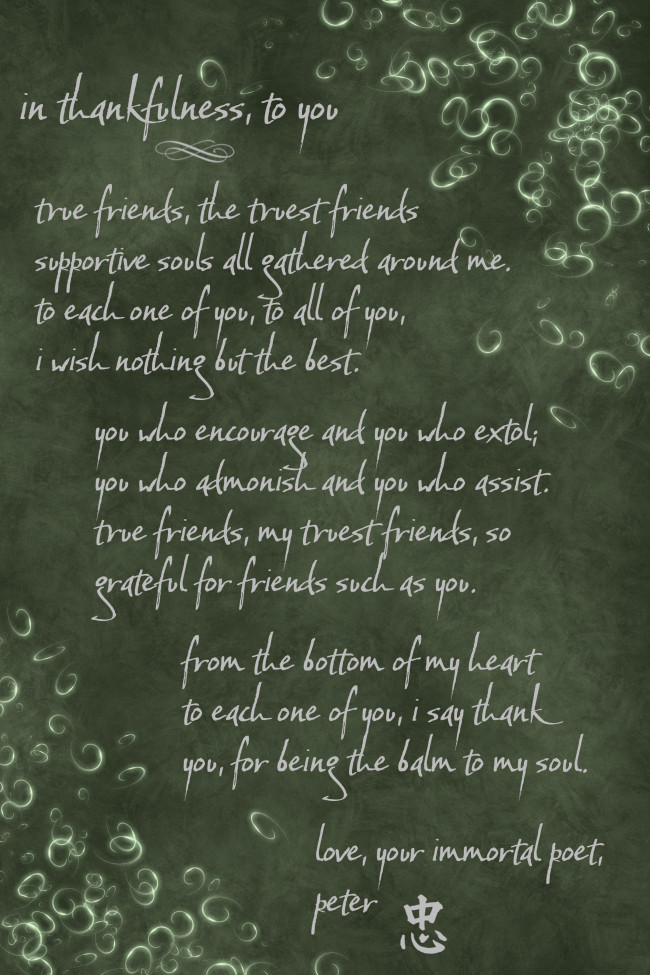 in thankfulness, to you
true friends, the truest friends
supportive souls all gathered around me.
to each one of you, to all of you,
i wish nothing but the best.
you who encourage and you who extol;
you who admonish and you who assist.
true friends, my truest friends, so
grateful for friends such as you.
from the bottom of my heart
to each one of you, i say thank
you, for being the balm to my soul.
love, your immortal poet,
peter 忠